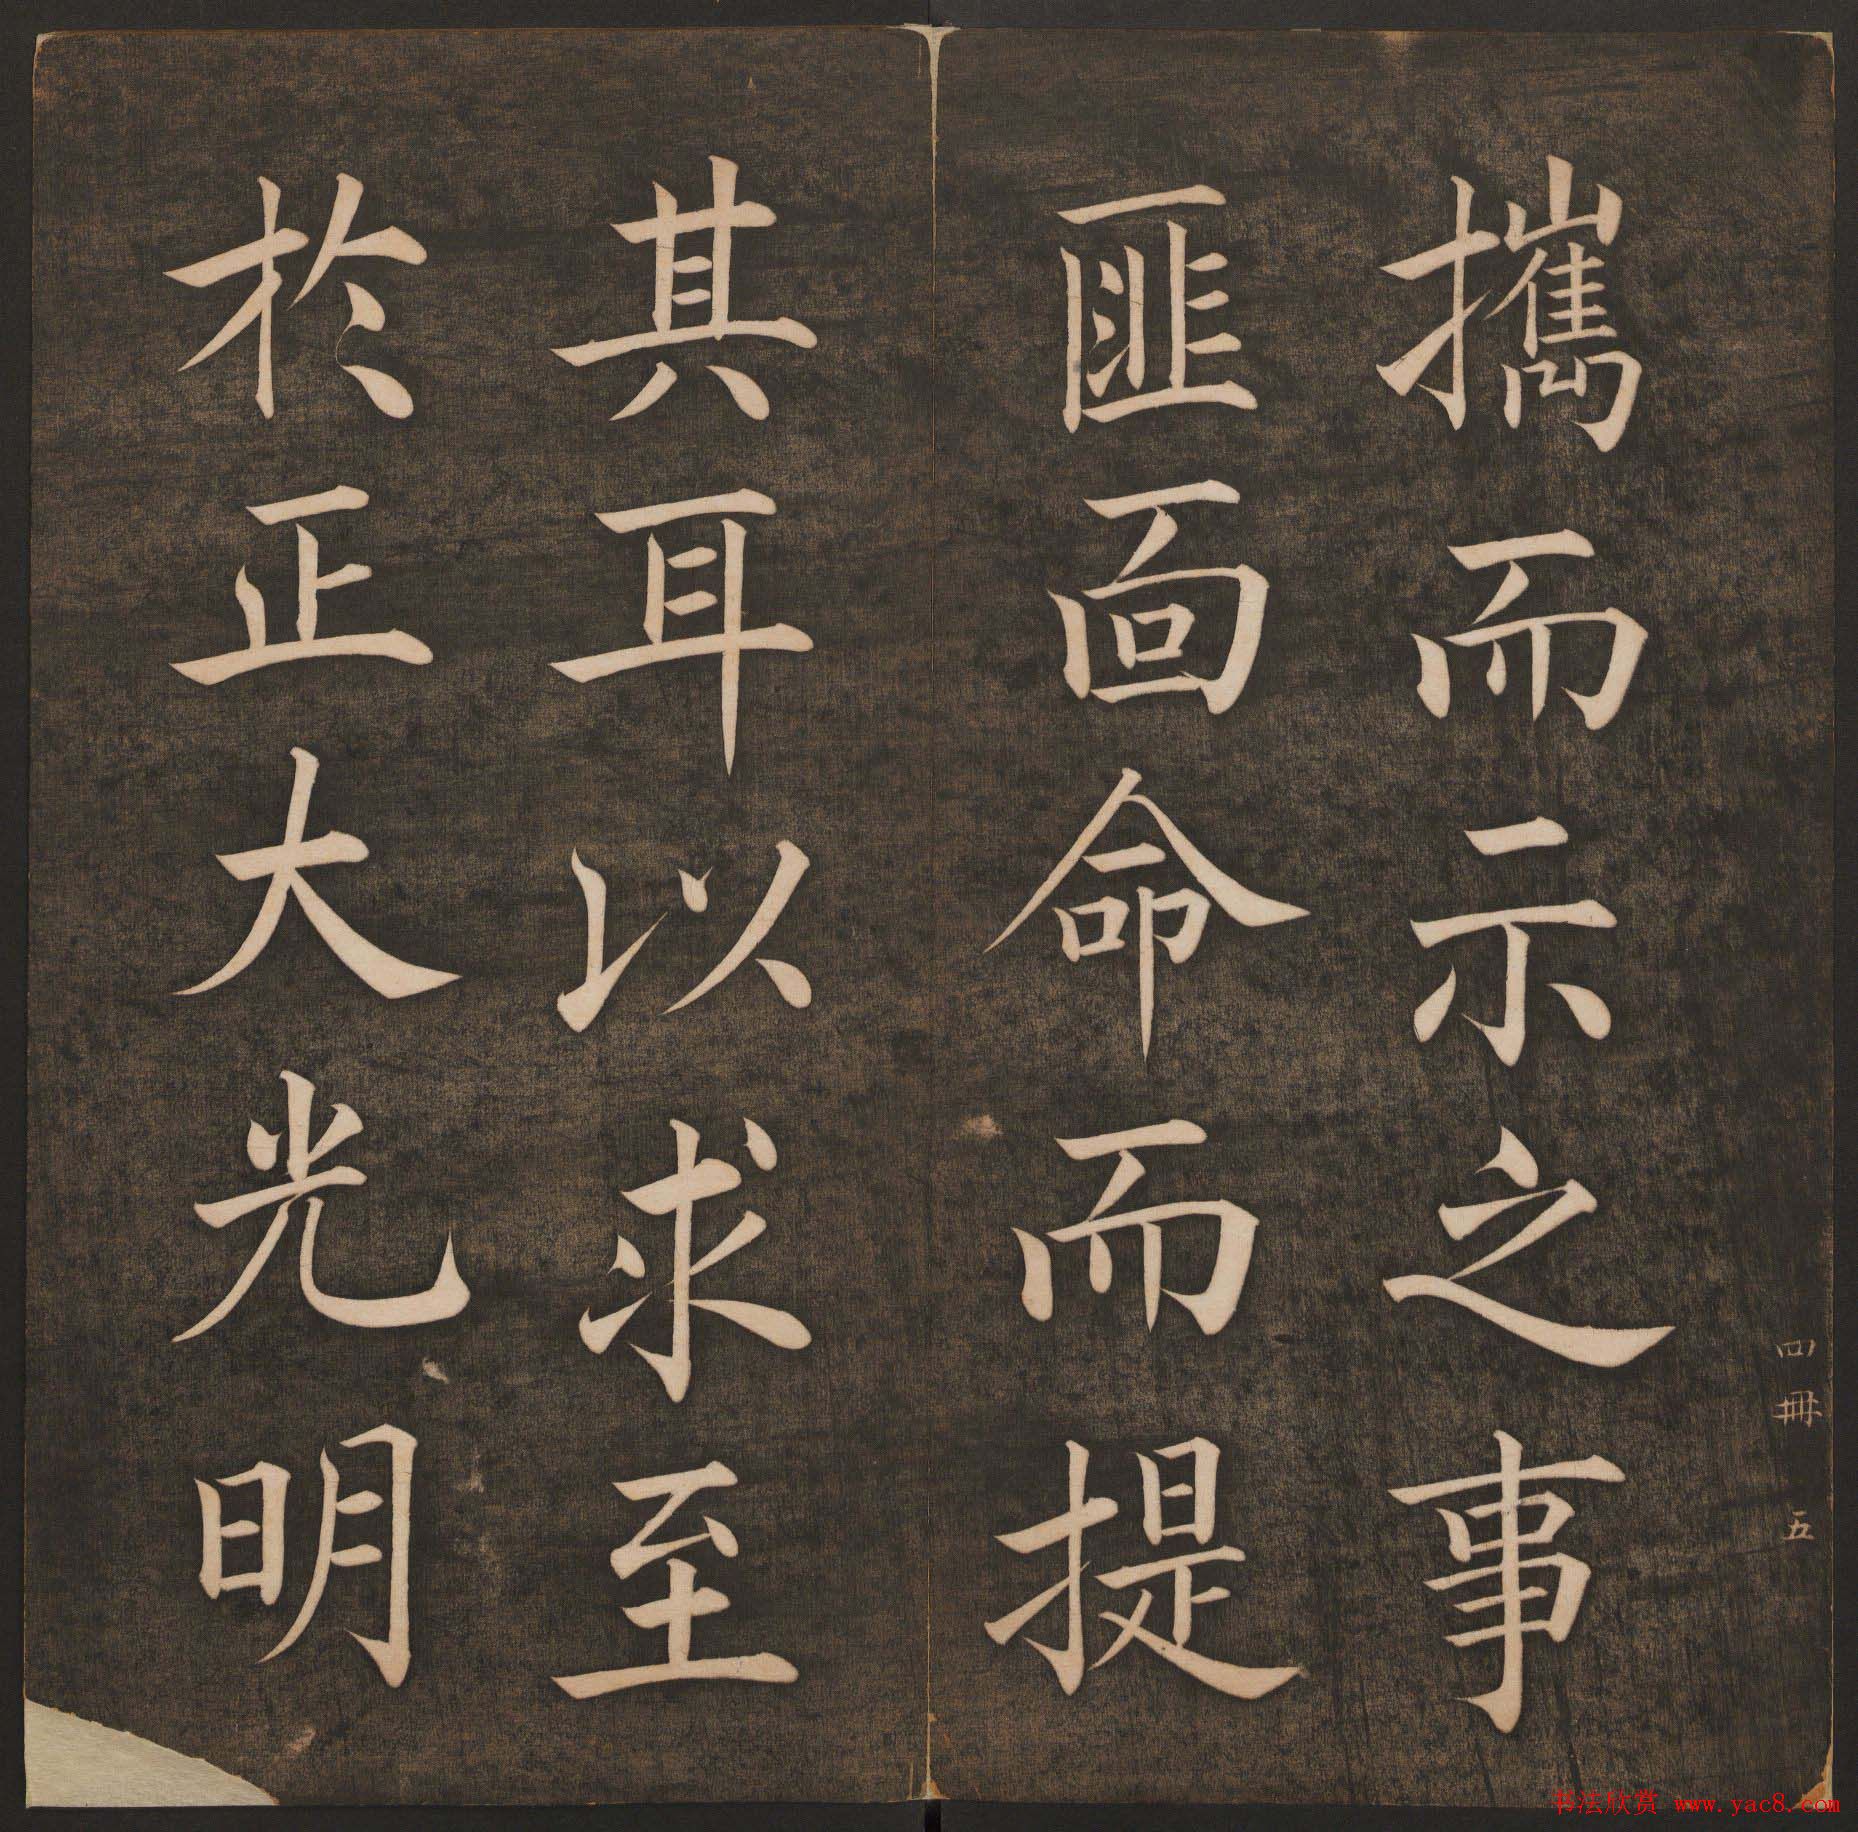 攜而示之事
匪面命而提
其耳以求至
於正大光明
四冊 五
书法欣赏 www.yac8.com